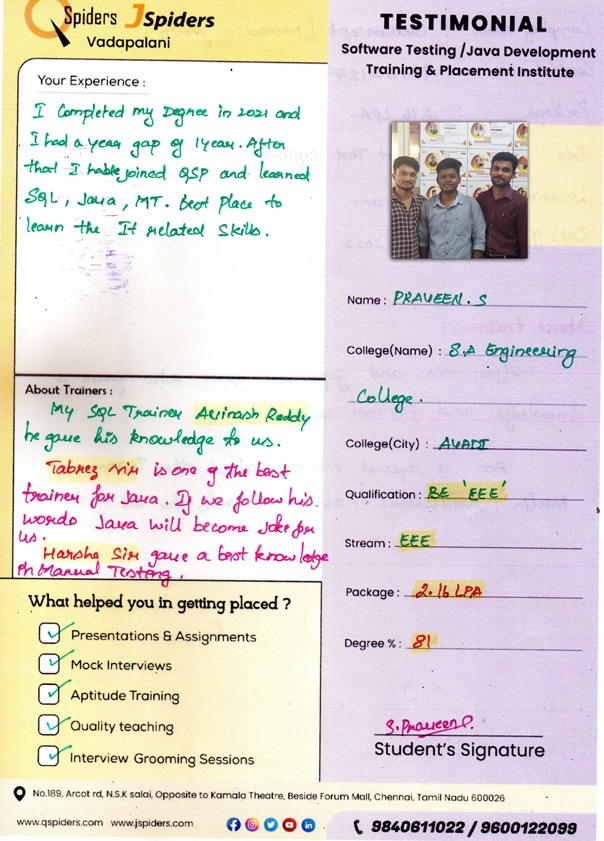 QSpiders JSpiders
Vadapalani
Your Experience :
I Completed my Degree in 2021 and
I had a year gap of 1 year. After
that I have joined QSP and learned
SQL, Java, MT. Best Place to
learn the It related Skills.
About Trainers :
My SQL Trainer Avinash Reddy
he gave his knowledge to us.
Tabrez Sir is one of the best
trainer for Java. If we follow his
words Java will become Joke for
us.
Harsha Sir gave a best knowledge
in Manual Testing.
What helped you in getting placed ?
Presentations & Assignments
Mock Interviews
Aptitude Training
Quality teaching
Interview Grooming Sessions
TESTIMONIAL
Software Testing /Java Development
Training & Placement Institute
Name : PRAVEEN . S
College(Name) : S.A Engineering
College .
College(City) : AVADI
Qualification : BE 'EEE'
Stream : EEE
Package : 2.16 LPA
Degree % : 81
S. Praveen
Student's Signature
No.189, Arcot rd, N.S.K salai, Opposite to Kamala Theatre, Beside Forum Mall, Chennai, Tamil Nadu 600026
www.qspiders.com www.jspiders.com
9840611022 / 9600122099